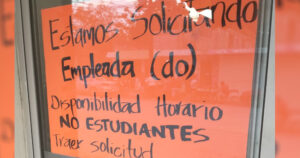 Estamos Solicitando
Empleada (do)
Disponibilidad Horario
NO ESTUDIANTES
Traer solicitud